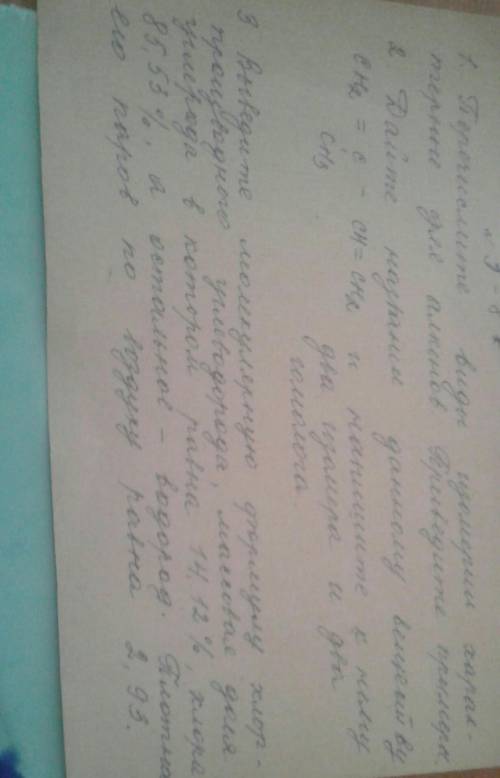 1. Перечислите виды изомерии харак-
терные для алкинов Приведите примеры
2 Дайте название данному веществу
CH2 = C - CH = CH2 и напишите к нему
CH3 два изомера и два
гомолога
3 Выведите молекулярную формулу хлор-
производного углеводорода, массовая доля
углерода в котором равна 14,12%, хлора
85,53%, а остальное - водород. Плотно
его паров по воздуху равна 2,93.